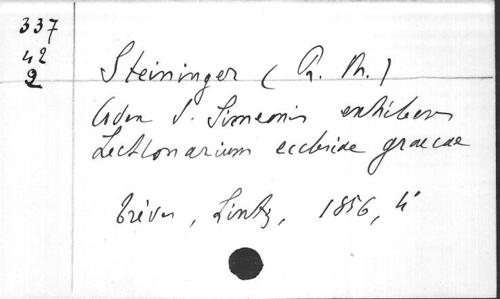 337
42
2
Steininger (R. M.)
Codex S. Simeonis exhibens
Lectionarium ecclesiae graecae
Trèves, Lintz, 1856, 4°